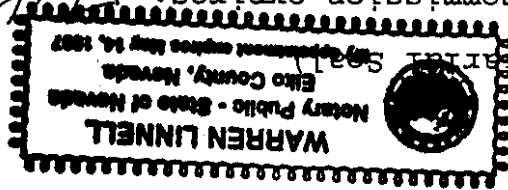 WARREN LINNELL
Notary Public - State of Nevada
Elko County, Nevada
My appointment expires May 14, 1997